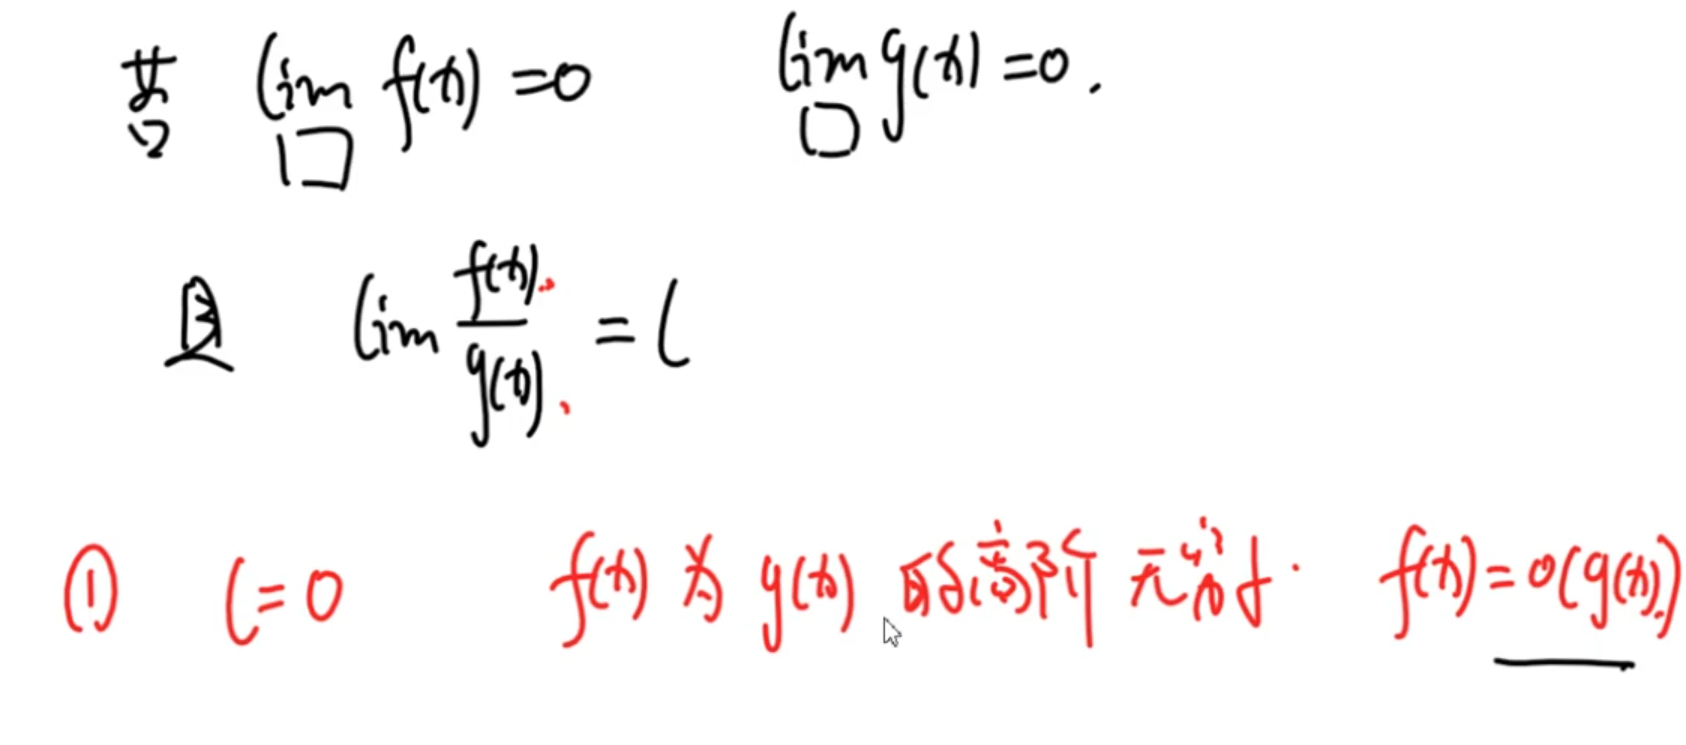 若 lim f(x) =0 lim g(x) =0.
□ □
且 lim f(x)/g(x) = l
① l=0 f(x) 为 g(x) 的高阶无穷小. f(x)=o(g(x))